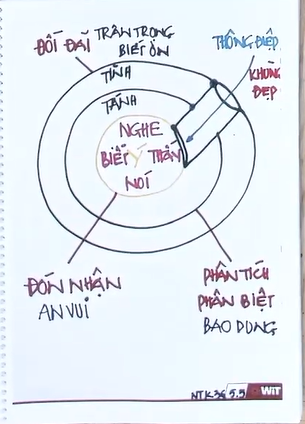 ĐỐI ĐÃI
TRÂN TRỌNG
BIẾT ƠN
THÔNG ĐIỆP
TÌNH
KHÙNG
ĐẸP
TÁNH
NGHE
BIẾT Ý THẤY
NÓI
ĐÓN NHẬN
AN VUI
PHÂN TÍCH
PHÂN BIỆT
BAO DUNG
NTK36 5.5 WIT